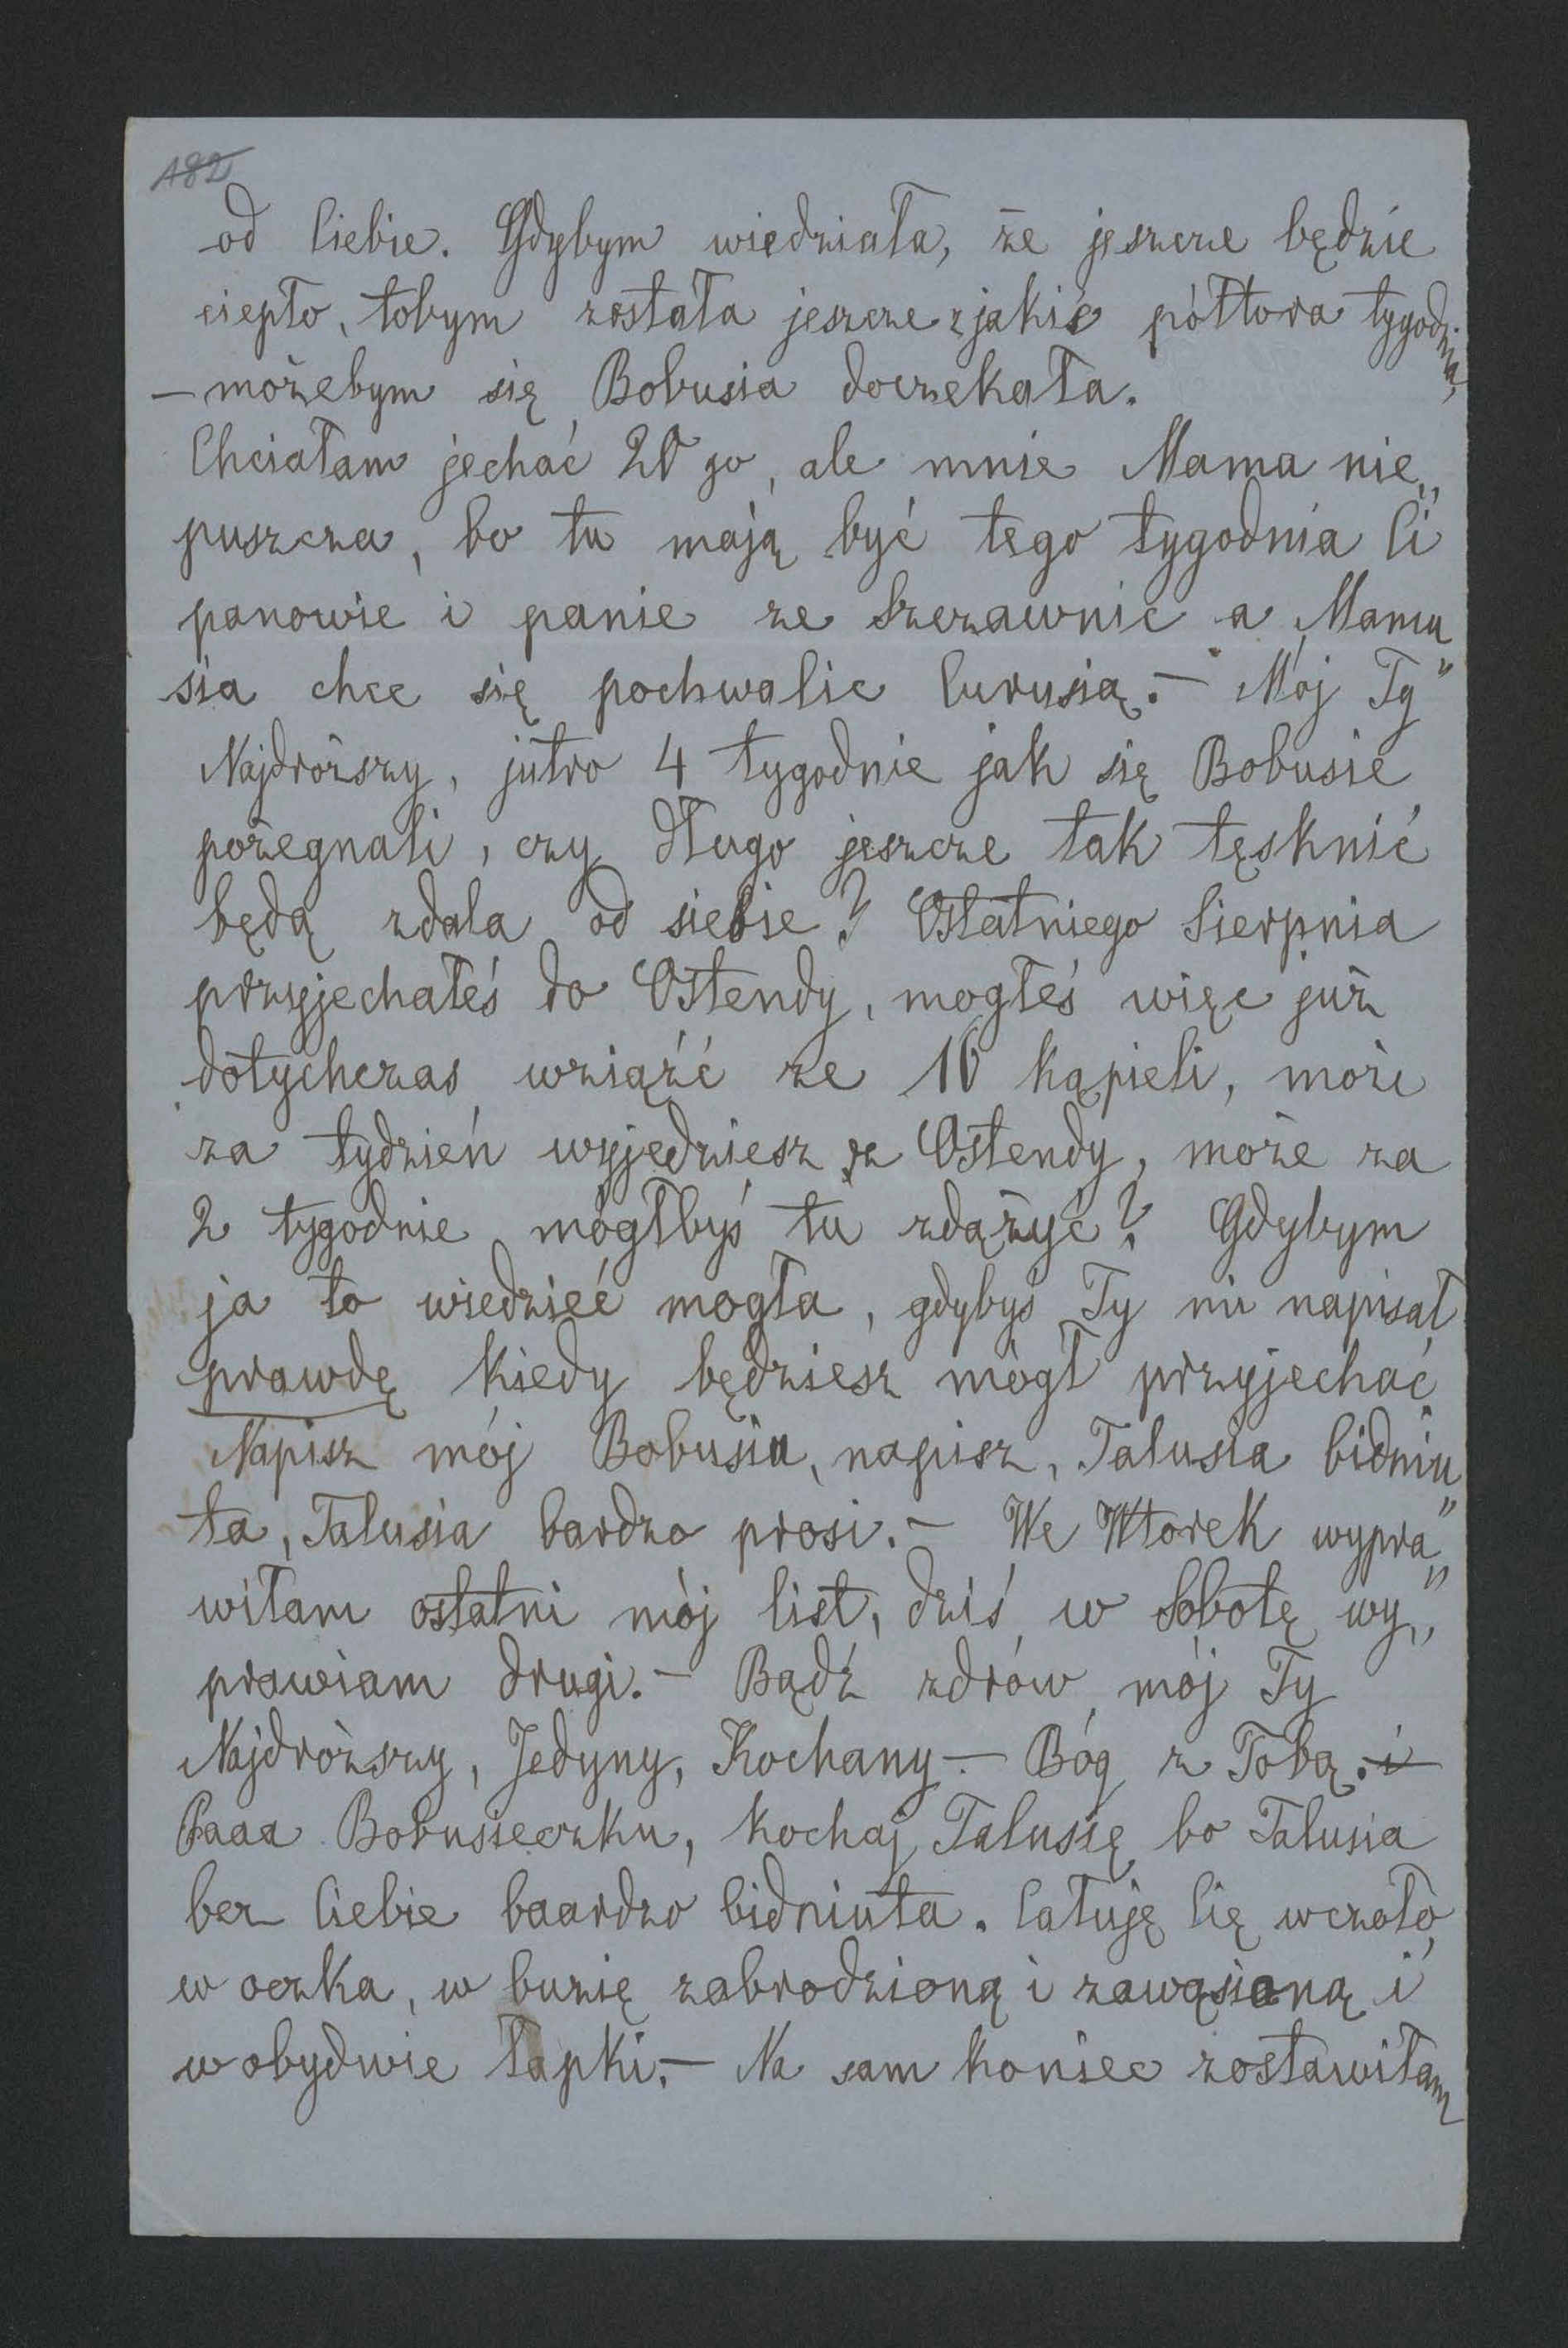 182
od Ciebie. Gdybym wiedziała, że jeszcze będzie
ciepło, tobym została jeszcze z jakie półtora tygodnia,
– możebym się Bobusia doczekała.
Chciałam jechać 20 go, ale mnie Mama nie„
puszcza, bo tu mają być tego tygodnia Ci
panowie i panie ze Szczawnic a Mamu„
sia chce się pochwalic Curusią. – Mój Ty
Najdroższy, jutro 4 tygodnie jak się Bobusie
pożegnali, czy długo jeszcze tak tęsknić
będą zdala od siebie? Ostatniego Sierpnia
przyjechałeś do Ostendy, mogłeś więc już
dotychczas wziąźć ze 10 kąpieli, może
za tydzień wyjedziesz z Ostendy, może za
2 tygodnie mógłbyś tu zdążyć? Gdybym
ja to wiedzieć mogła, gdybyś Ty mi napisał
prawdę kiedy będziesz mógł przyjechać
Napisz mój Bobusiu, napisz, Talusia bidniu„
ta, Talusia bardzo prosi. – We Wtorek wypra„
wiłam ostatni mój list, dziś w Sobotę wy„
prawiam drugi. – Bądź zdrów mój Ty
Najdroższy, Jedyny, Kochany – Bóg z Tobą. i
Paaa Bobusieczku, kochaj Talusię bo Talusia
bez Ciebie baardzo bidniuta. Całuję Cię w czoło,
w oczka, w buzię zabrodzioną i zawąsioną i
w obydwie łapki. – Na sam koniec zostawiłam